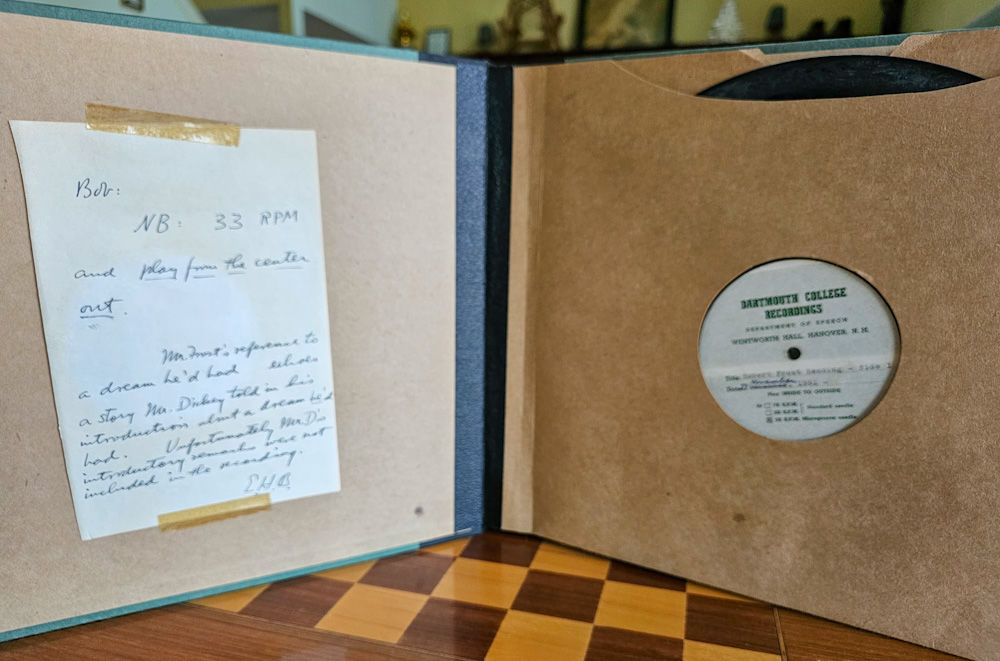 Bob:
NB: 33 RPM
and play from the center
out.
Mr. Frost's reference to
a dream he'd had echoes
a story Mr. Dickey told in his
introduction about a dream he'd
had. Unfortunately Mr. D's
introductory remarks were not
included in the recording.
E.H.B.
DARTMOUTH COLLEGE
RECORDINGS
DEPARTMENT OF SPEECH
WENTWORTH HALL, HANOVER, N. H.
Robert Frost Reading - Side 1
November
INSIDE TO OUTSIDE
78 R.P.M.
33 R.P.M. Standard needle
R.P.M. Microgroove needle